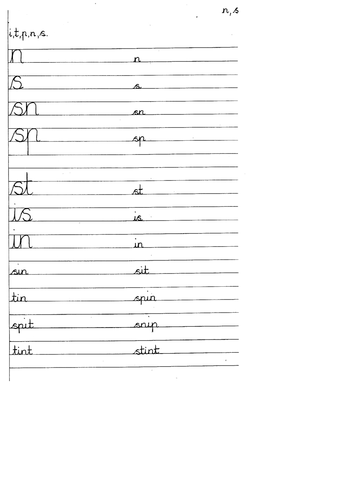 n, s
i,t,p,n,s.
n n
s s
sn sn
sp sp
st st
is is
in in
sin sit
tin spin
spit snip
tint stint